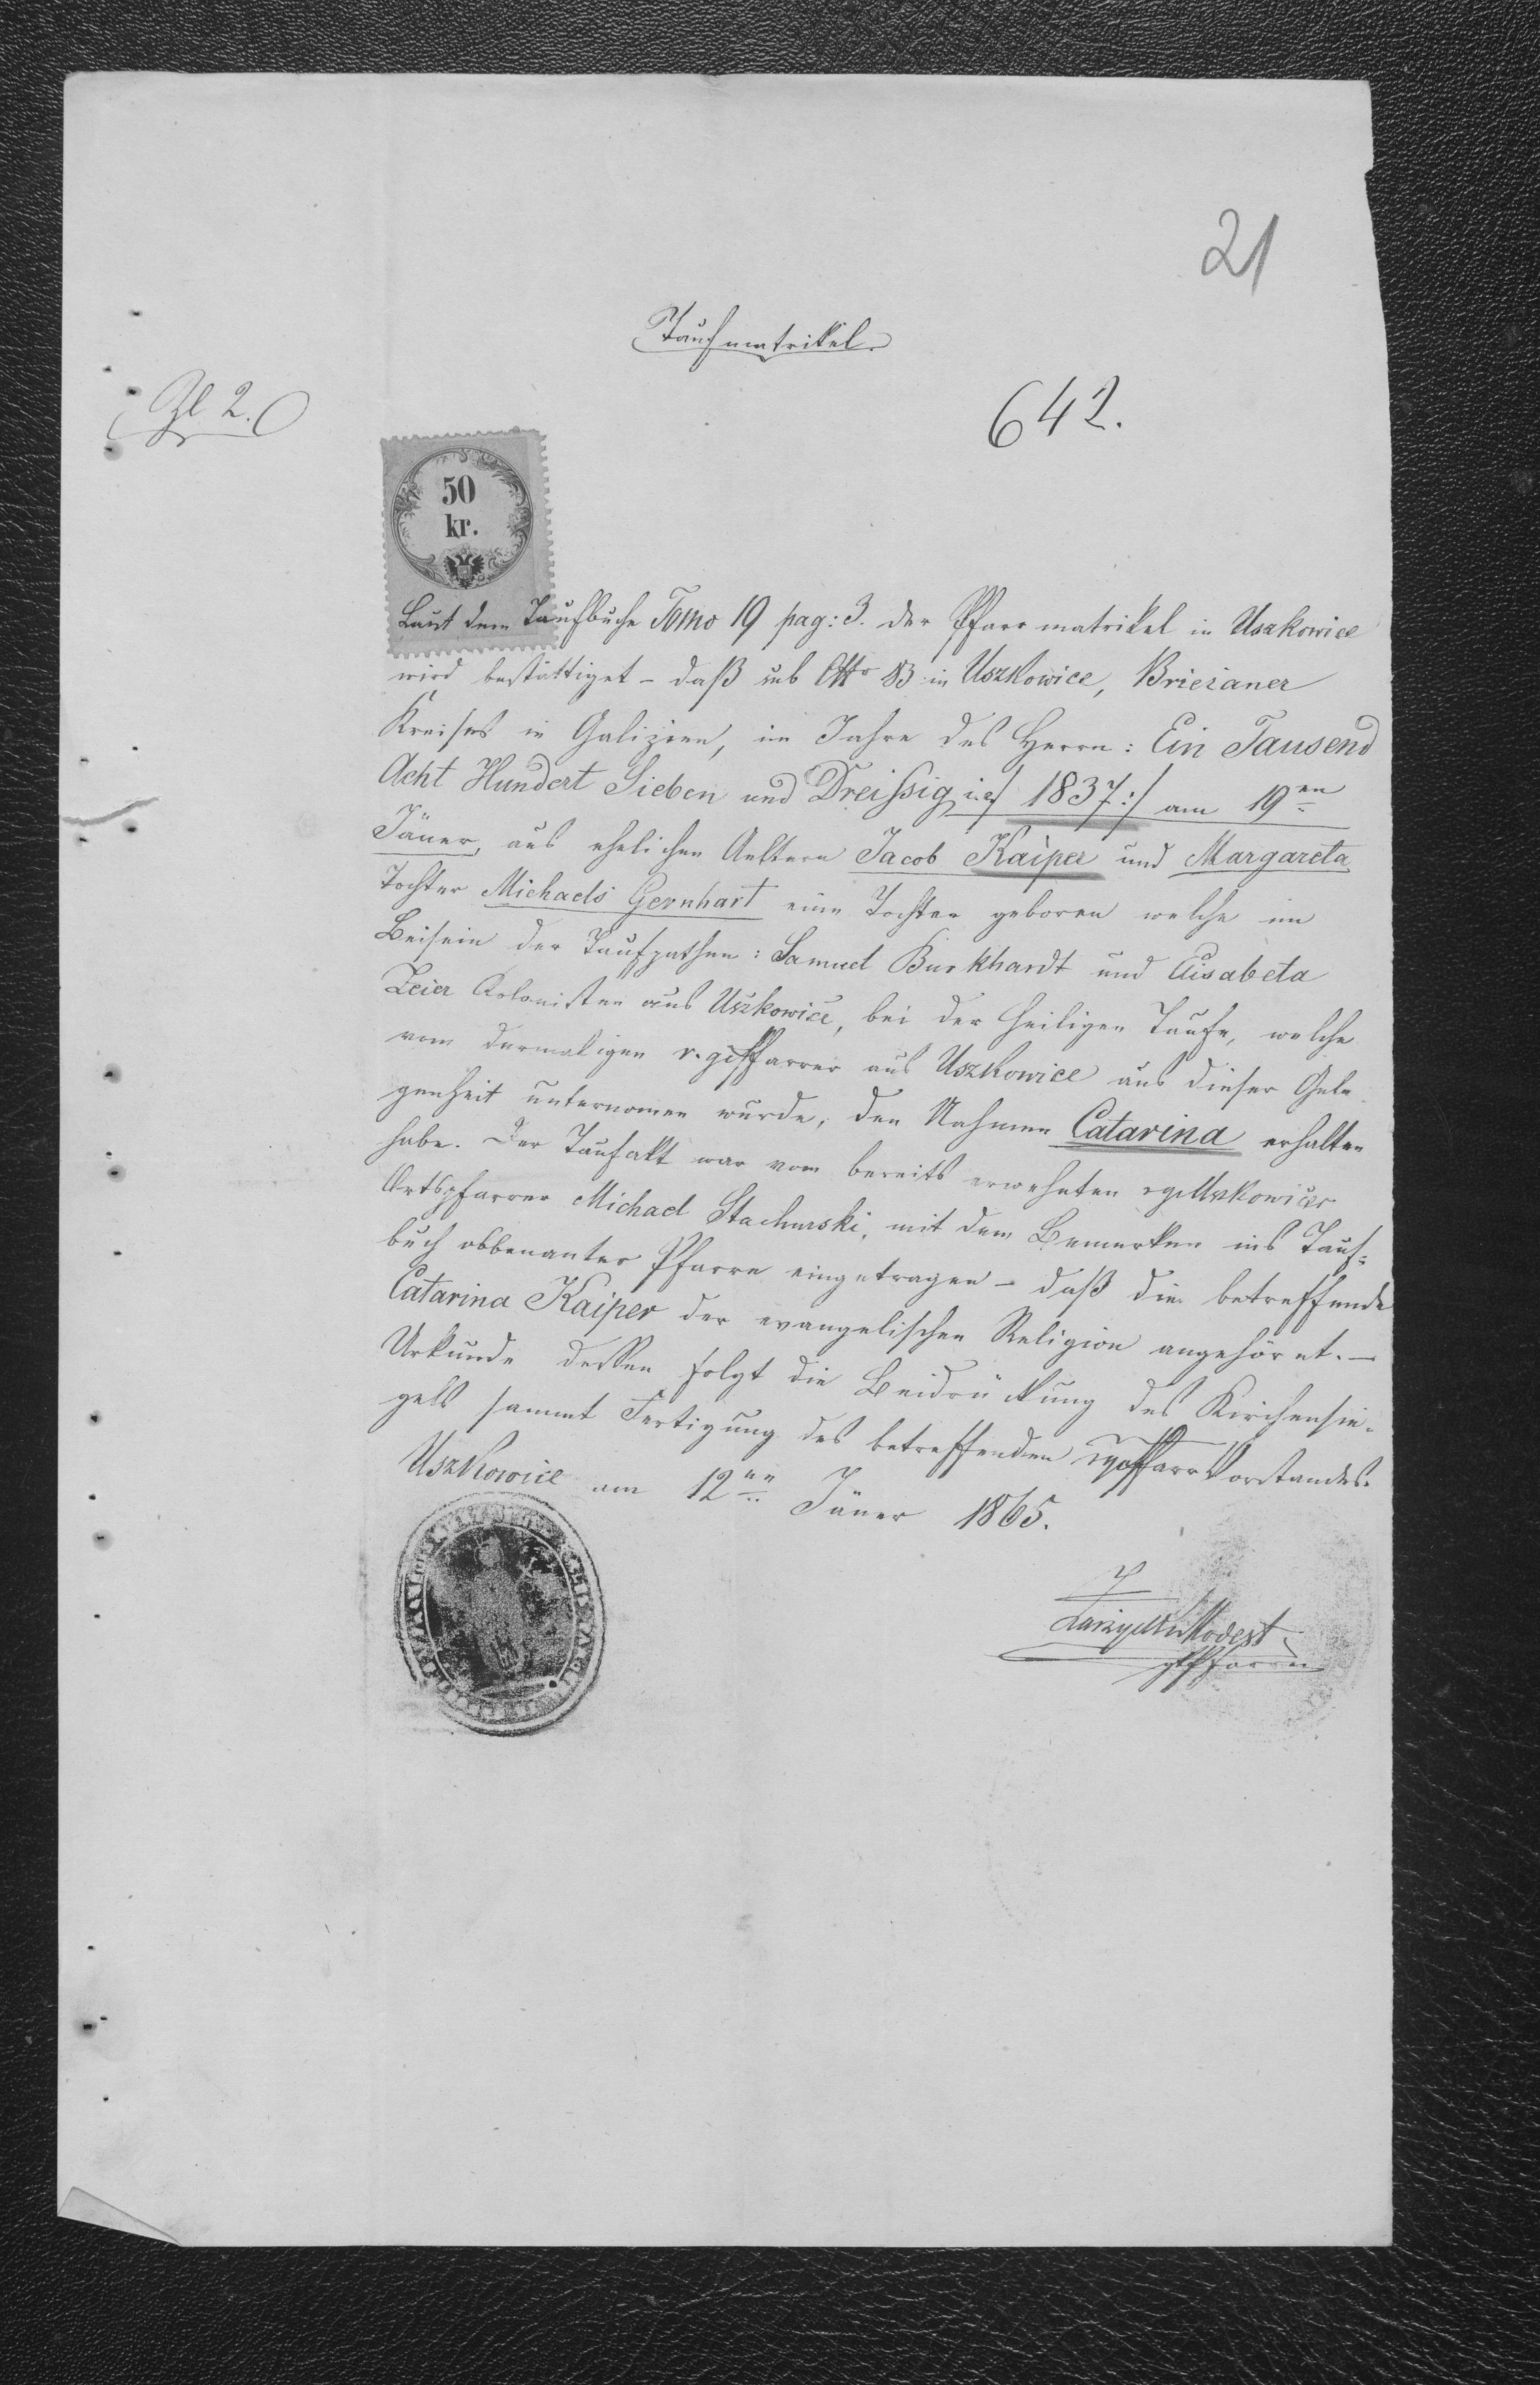 21
Taufmatrikel.
Zl 2.
642.
50
kr.
Laut dem Taufbuche Tomo 19 pag: 3. der Pfarr matrikel in Uszkowice
wird bestättiget – daß sub CNro 83 in Uszkowice, Brieżaner
Kreises in Galizien, im Jahre des Herrn: Ein Tausend
Acht Hundert Sieben und Dreißig i.e/ 1837:/ am 19en
Jäner, aus ehelichen Aeltern Jacob Kaiper und Margareta
Tochter Michaels Gernhart eine Tochter geboren welche im
Beisein der Taufpathen: Samuel Burkhardt und Elisabeta
Zeier Colonisten aus Uszkowice, bei der heiligen Taufe, welche
vom darmaligen r. g. Pfarrer aus Uszkowice aus dieser Gele
genheit unternomen wurde, den Nahmen Catarina erhalten
habe. Der Taufakt war vom bereits erwehnten rg. Uszkowicer
Ortspfarrer Michael Stachurski, mit dem Bemerken ins Tauf=
buch obbenanter Pfarre eingetragen – daß die betreffende
Catarina Kaiper der evangelischen Religion angehöret. –
Urkunde dessen folgt die Beidrückung des Kirchensie-
gels sammt Fertigung des betreffenden rg. Pfarr Vorstandes.
Uszkowice am 12en Jäner 1865.
Modest
Pfarrer